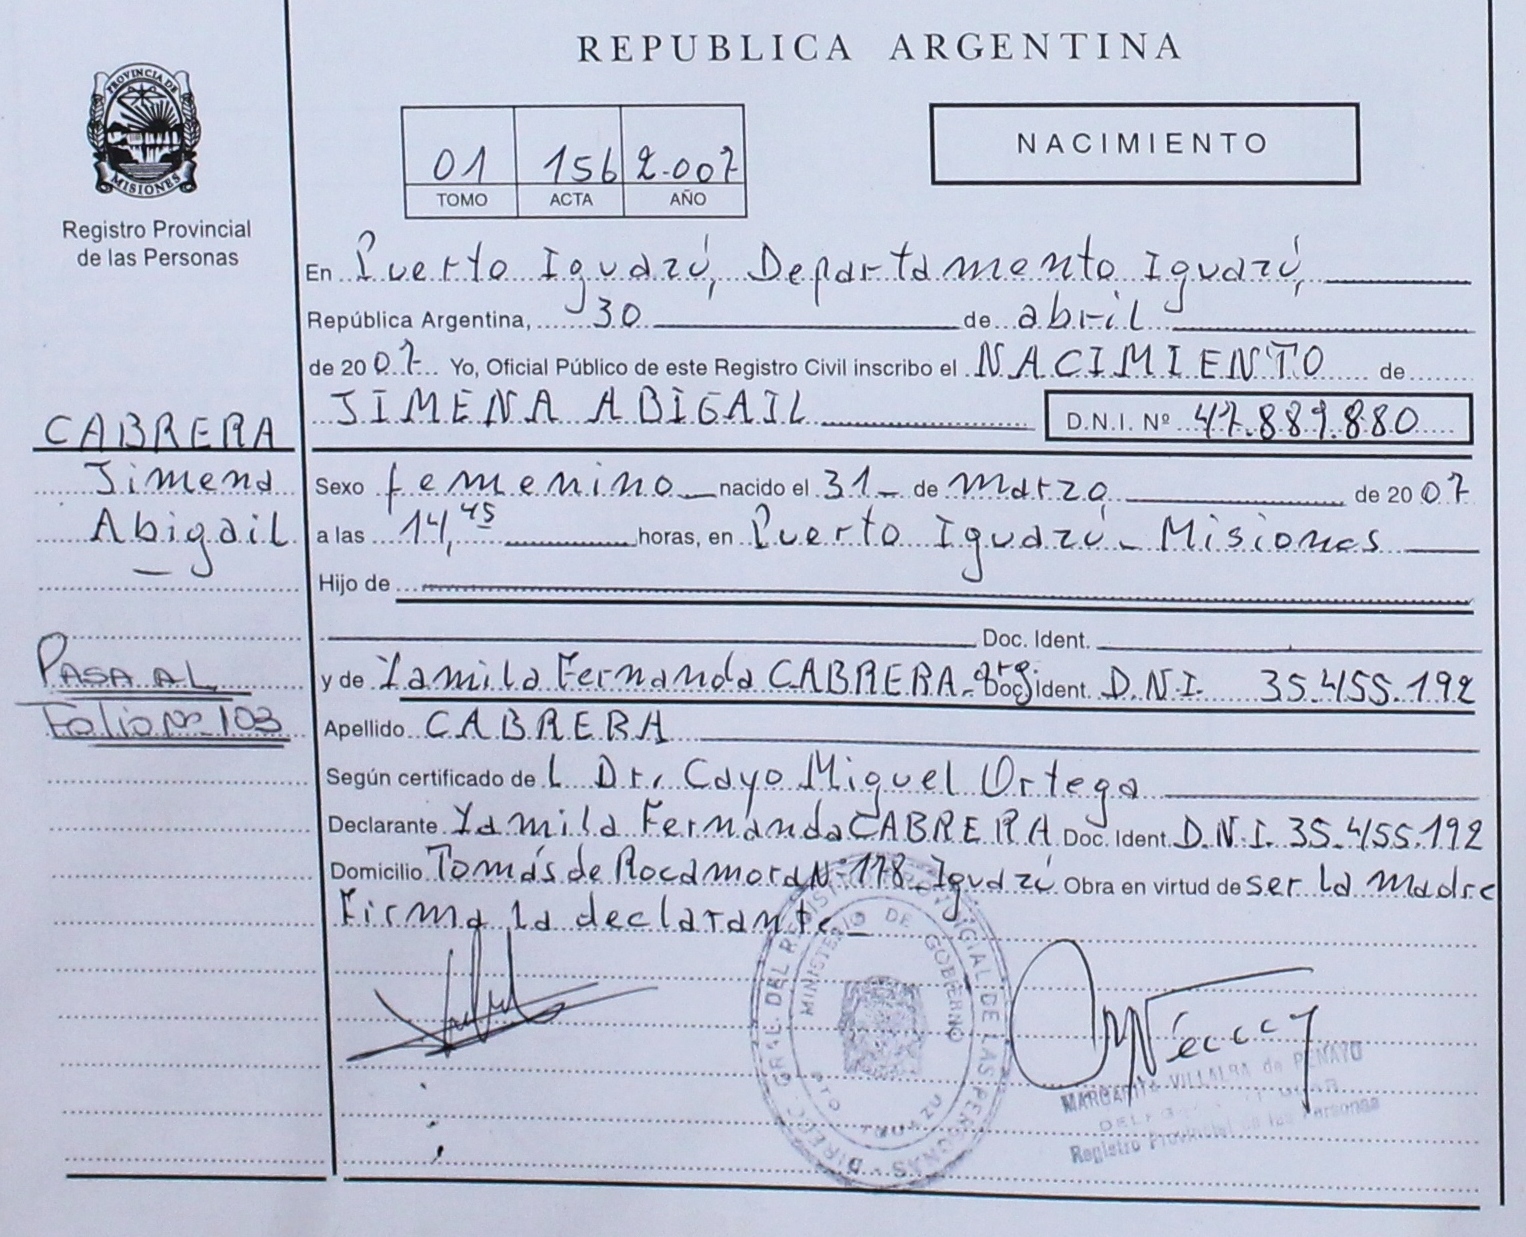 REPUBLICA ARGENTINA
PROVINCIA DE
MISIONES
Registro Provincial
de las Personas
01 156 2.007
TOMO ACTA AÑO
NACIMIENTO
En Puerto Iguazú, Departamento Iguazú,
República Argentina, 30 de abril
de 2007 Yo, Oficial Público de este Registro Civil inscribo el NACIMIENTO de
JIMENA ABIGAIL D.N.I. Nº 47.889.880
CABRERA
Jimena
Abigail
Sexo femenino nacido el 31 de marzo de 2007
a las 14,45 horas, en Puerto Iguazú - Misiones
Hijo de
Doc. Ident.
y de Yamila Fernanda CABRERA. arg. Doc. Ident. D.N.I. 35.455.192
PASA AL
Folio Nº 103
Apellido CABRERA
Según certificado de L Dr. Cayo Miguel Ortega
Declarante Yamila Fernanda CABRERA Doc. Ident. D.N.I. 35.455.192
Domicilio Tomás de Rocamora Nº 178 - Iguazú Obra en virtud de ser la madre
Firma la declarante
DIRECC. GRAL. DEL REGISTRO PROVINCIAL DE LAS PERSONAS
MINISTERIO DE GOBIERNO
PTO IGUAZU
MARGARITA VILLALBA de PENAYO
Registro Provincial de las Personas